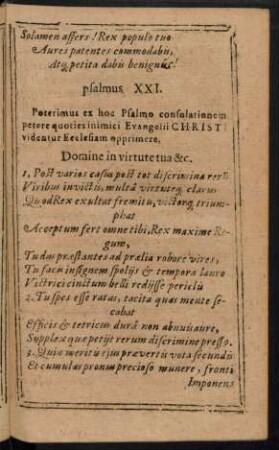 Solamen affers! Rex populo tuo
Aures patentes commodabis,
Atq; petita dabis benignus!
psalmus XXI.
Poterimus ex hoc Psalmo consolationem
petere quoties inimici Evangelii CHRISTI
videntur Ecclesiam opprimere.
Domine in virtute tua &c.
1. Post varios casus post tot discrimina rerū
Viribus invictis, multâ virtuteq; clarus
Quod Rex exultat fremitu, victorq; trium-
phat
Acceptum fert omne tibi, Rex maxime Re-
gum,
Tu das præstantes ad prælia robore vires,
Tu facis insignem spolijs & tempora lauro
Victrici cinctum belli redijsse periclis
2. Tu spes esse ratas, tacita quas mente se-
cabat
Efficis & tetricus durâ non abnuis aure,
Supplex quæ petijt rerum discrimine presso.
3. Quin meritis ejus prævertis vota secundis
Et cumulas pronus precioso munere, fronti
Imponens